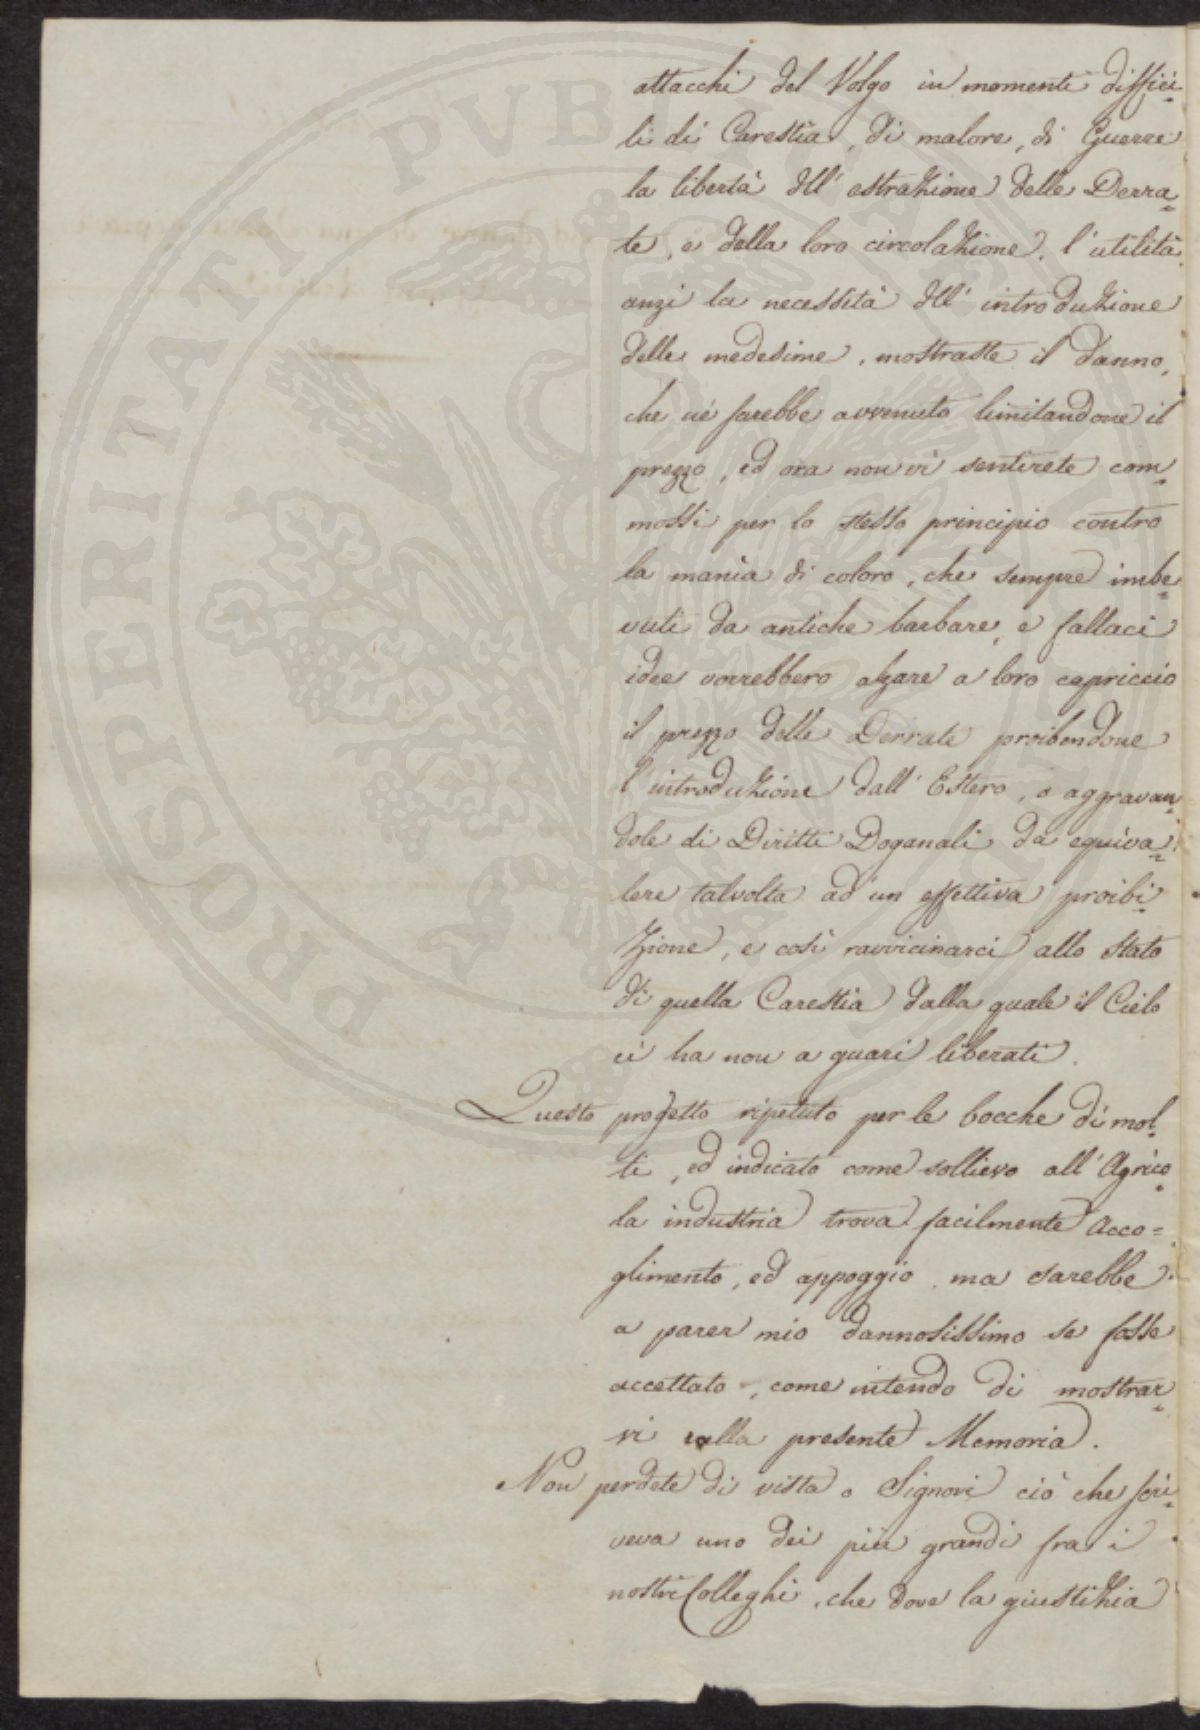 attacchi del Volgo in momenti diffici=
li di Carestia, di malore, di Guerre
la libertà dell' estrazione delle Derra=
te, e della loro circolazione, l'utilità
anzi la necessità dell' introduzione
delle medesime, mostraste il danno,
che ne sarebbe avvenuto limitandone il
prezzo, ed ora non vi sentirete com=
mossi per lo stesso principio contro
la manìa di coloro, che sempre imbe=
vuti da antiche barbare, e fallaci
idee vorrebbero alzare a loro capriccio
il prezzo delle Derrate proibendone
l'introduzione dall' Estero, o aggravan=
dole di Diritti Doganali da equiva=
lere talvolta ad un effettiva proibi=
zione, e così ravvicinarci allo stato
di quella Carestia dalla quale il Cielo
ci ha non a guari liberati.
Questo progetto ripetuto per le bocche di mol=
ti, ed indicato come sollievo all' Agrico=
la industria trova facilmente acco=
glimento, ed appoggio, ma sarebbe
a parer mio dannosissimo se fosse
accettato, come intendo di mostrar=
vi nella presente Memoria.
Non perdete di vista o Signori ciò che scri=
veva uno dei più grandi fra i
nostri Colleghi, che dove la giustizia
PROSPERITATI PVBLICAE